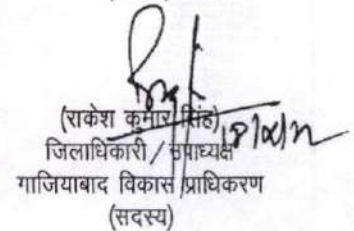 (राकेश कुमार सिंह)
जिलाधिकारी / उपाध्यक्ष
गाजियाबाद विकास प्राधिकरण
(सदस्य)